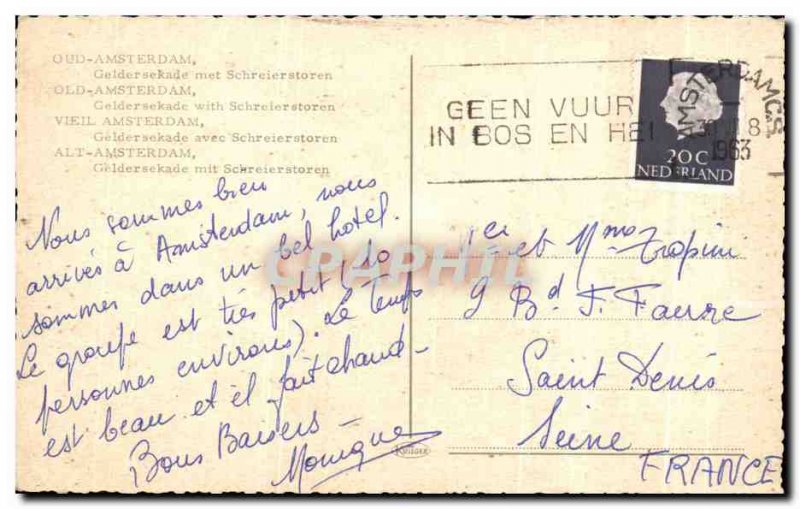 OUD-AMSTERDAM,
Geldersekade met Schreierstoren
OLD-AMSTERDAM,
Geldersekade with Schreierstoren
VIEIL AMSTERDAM,
Geldersekade avec Schreierstoren
ALT-AMSTERDAM,
Geldersekade mit Schreierstoren
Nous sommes bien
arrivés à Amsterdam, nous
sommes dans un bel hotel.
Le groupe est très petit (30
personnes environs). Le temps
est beau et il fait chaud -
Bons Baisers -
Monique
GEEN VUUR
IN BOS EN HEI
AMSTERDAM C.S.
1963
20 C
NEDERLAND
et Mme Tropini
9 Bd F. Faure
Saint Denis
Seine
FRANCE
CPAPHIL